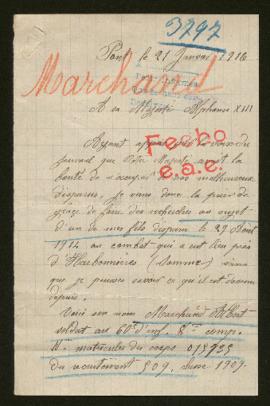 3292
Pont, le 21 Janvier 1916
Marchand
A sa Majesté Alphonse XIII
Ayant appris par la voix du
journal que Votre Majesté avait la
bonté de s'occuper de nos malheureux
disparus, je viens donc la prier de
grâce de faire des recherches au sujet
d'un de mes fils disparu le 29 Août
1914 au combat qui a eut lieu près
d'Harbonnières (Somme) afin
que je puisse savoir ce qu'il est devenu
depuis.
Fecho
e.a.e.
Voici son nom Marchand Albert
soldat au 60e d'inf. 8e comp.
No matricule du corps
du recrutement 809, classe 1909.